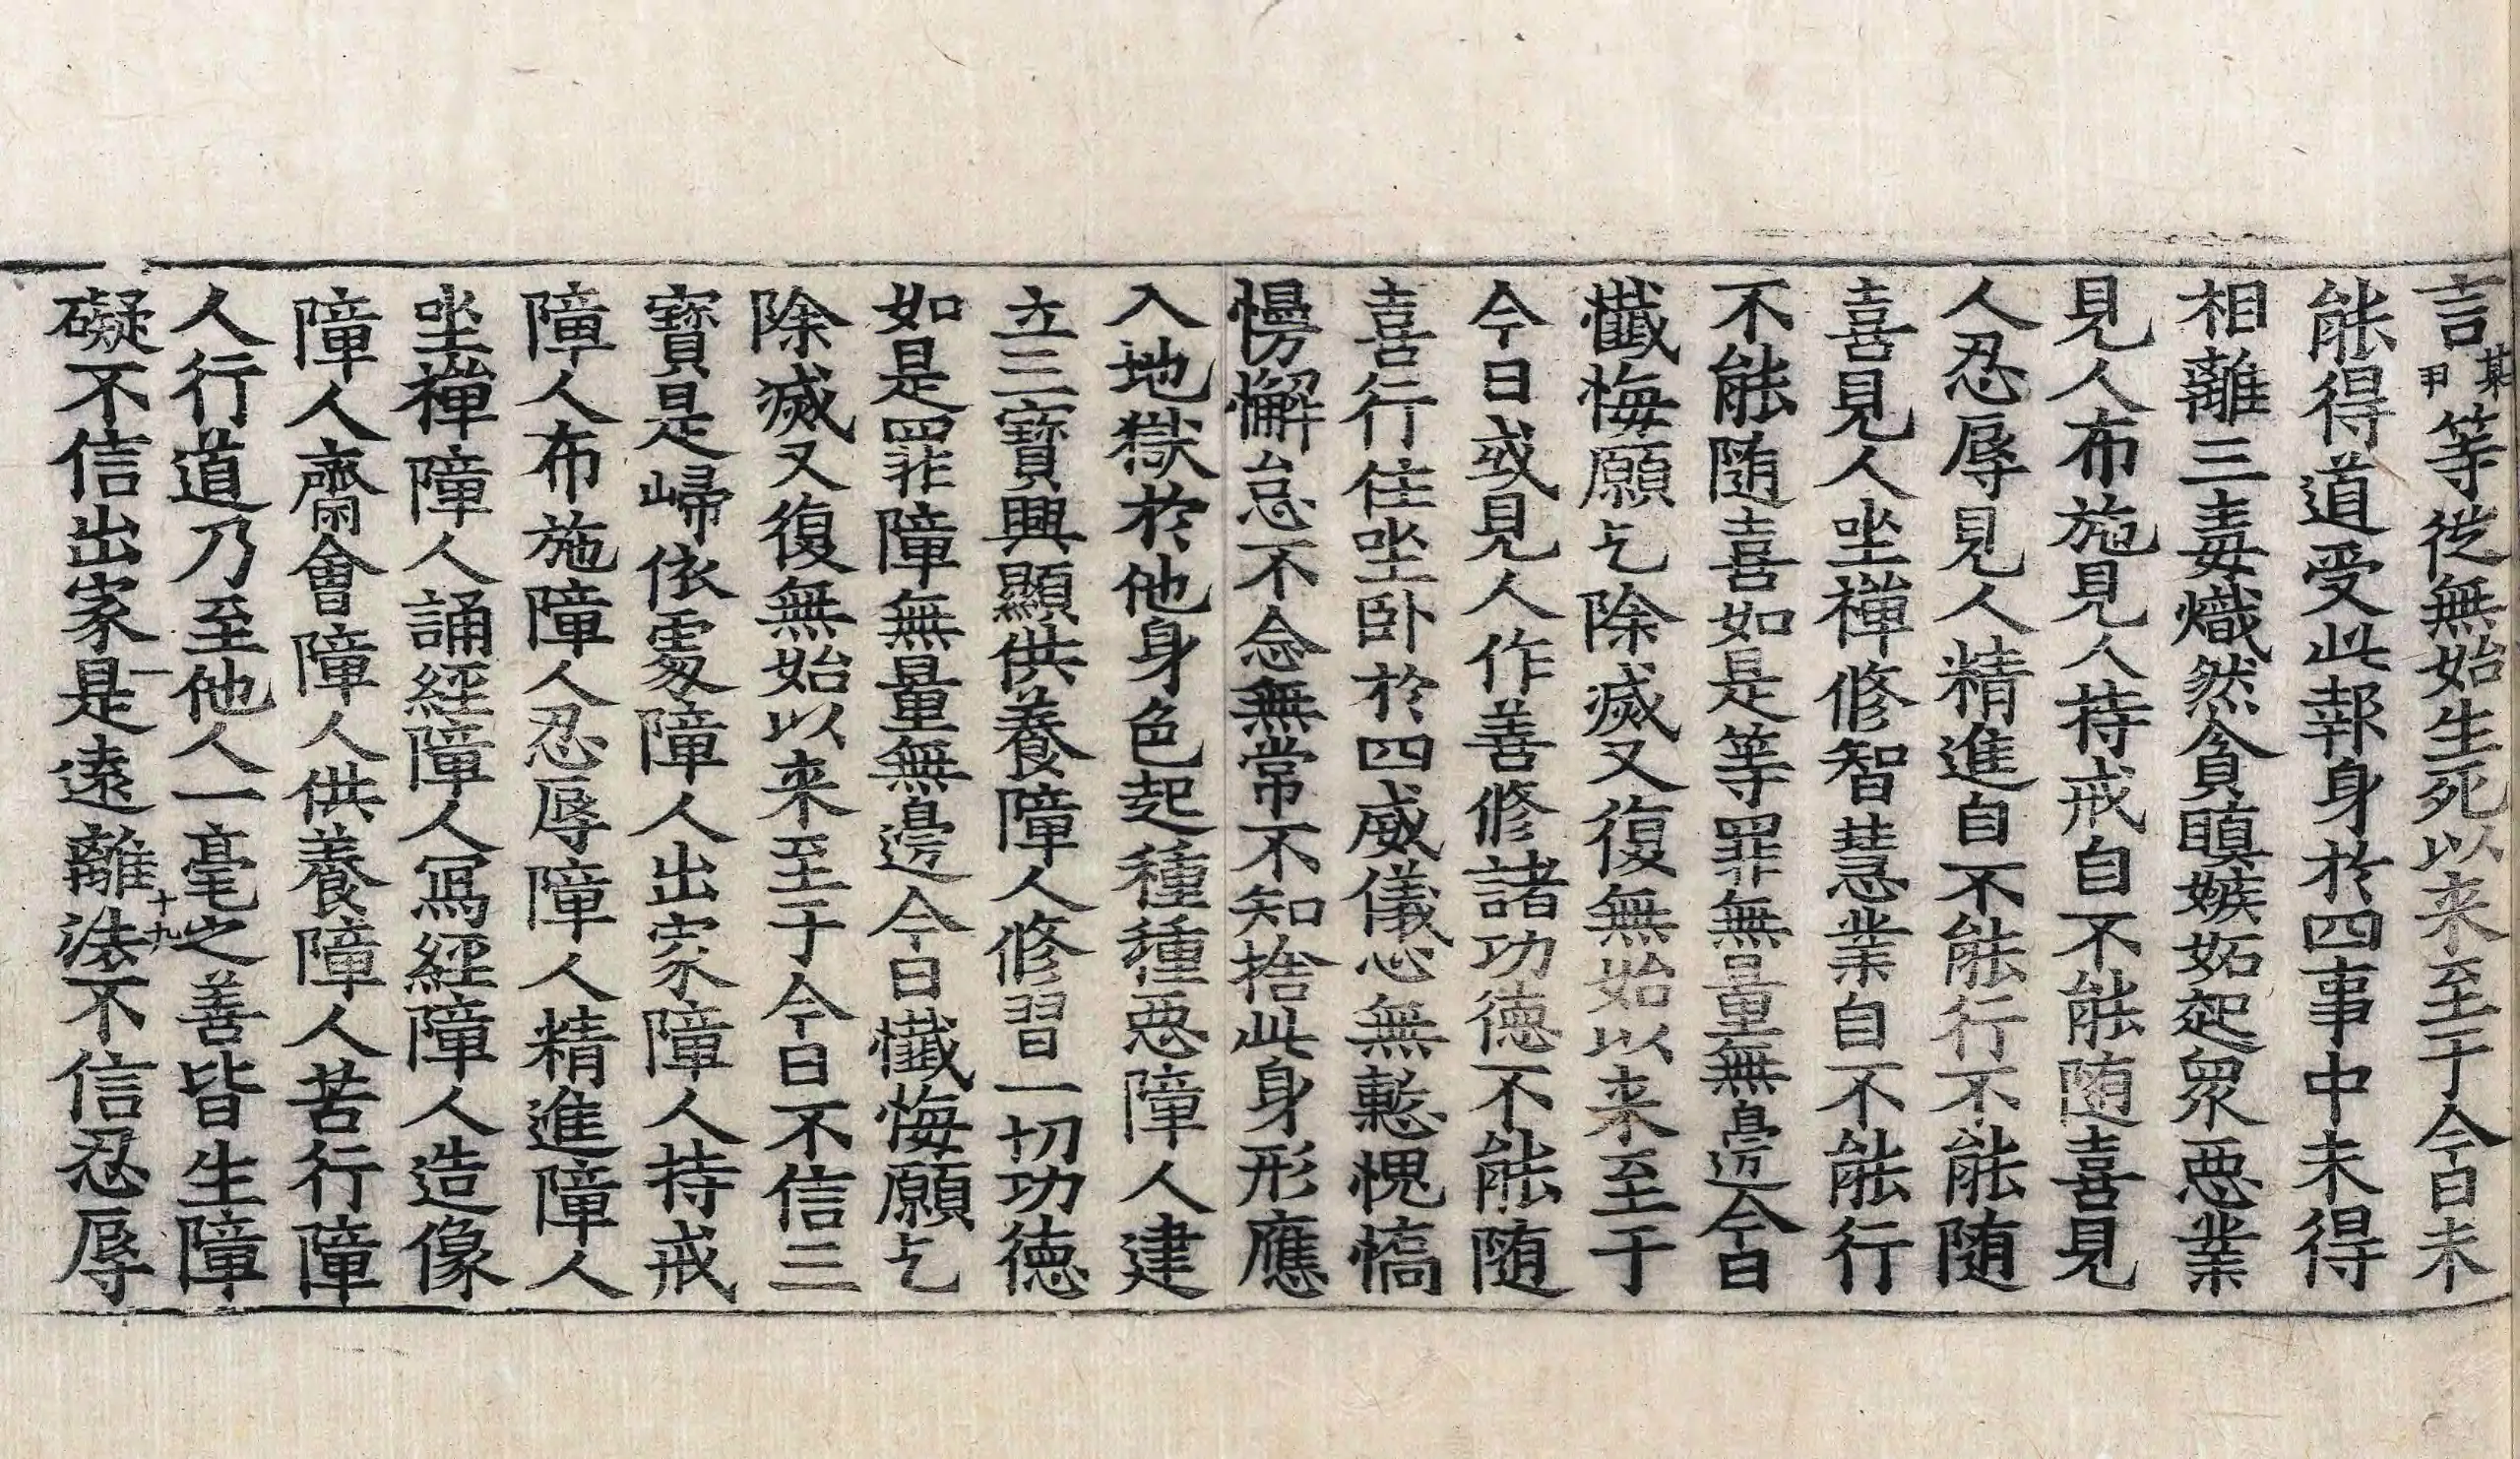 言某甲等從無始生死以来至于今日未
能得道受此報身於四事中未得
相離三毒熾然貪瞋嫉妬起衆惡業
見人布施見人持戒自不能随喜見
人忍辱見人精進自不能行不能随
喜見人坐禪修智慧業自不能行
不能随喜如是等罪無量無邊今日
懺悔願乞除滅又復無始以来至于
今日或見人作善修諸功德不能随
喜行住坐卧於四威儀心無慙愧憍
慢懈怠不念無常不知捨此身形應
入地獄於他身色起種種惡障人建
立三寶興顯供養障人修習一切功德
如是罪障無量無邊今日懺悔願乞
除滅又復無始以来至于今日不信三
寶是歸依處障人出家障人持戒
障人布施障人忍辱障人精進障人
坐禪障人誦經障人寫經障人造像
障人齋會障人供養障人苦行障
人行道乃至他人一毫之善皆生障
一 十九
礙不信出家是遠離法不信忍辱